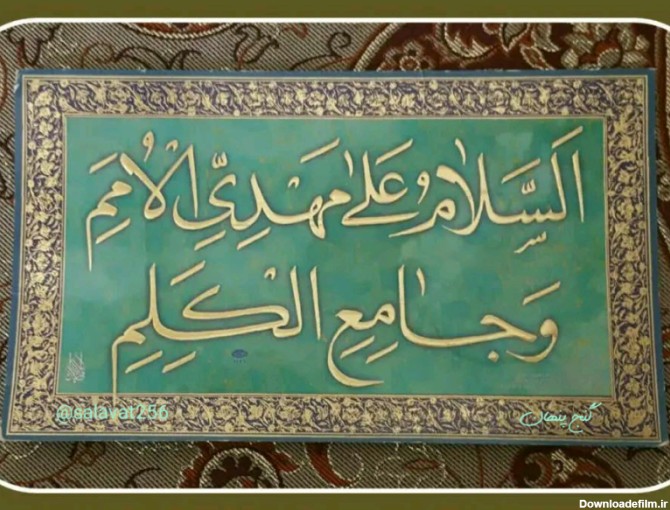 اَلسَّلَامُ عَلٰى مَهْدِيِّ الْاُمَمِ
وَ جَامِعِ الْكَلِمِ
@salavat256
گنج پنهان
Downloadefilm.ir